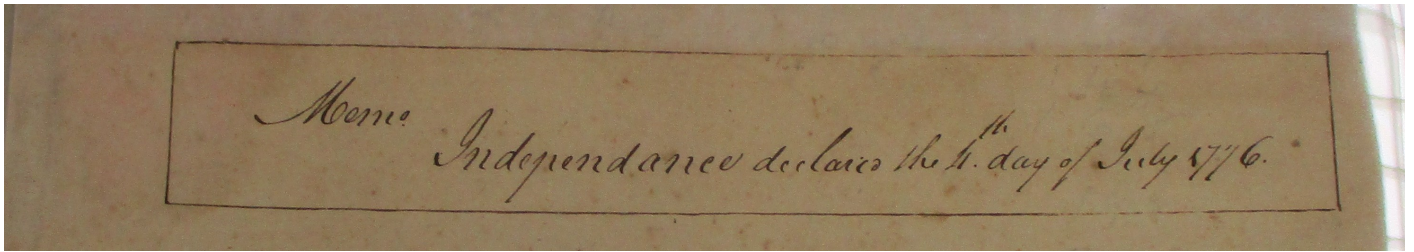 Memo.
Independance declared the 4th. day of July 1776.